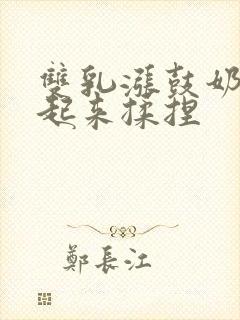 雙乳漲鼓奶
起来揉捏
鄭長江